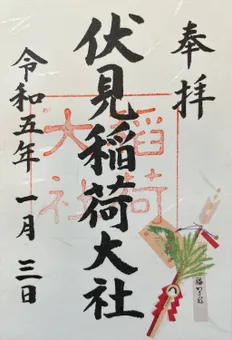 奉拝
伏見稲荷大社
稲荷
大社
令和五年 一月 三日